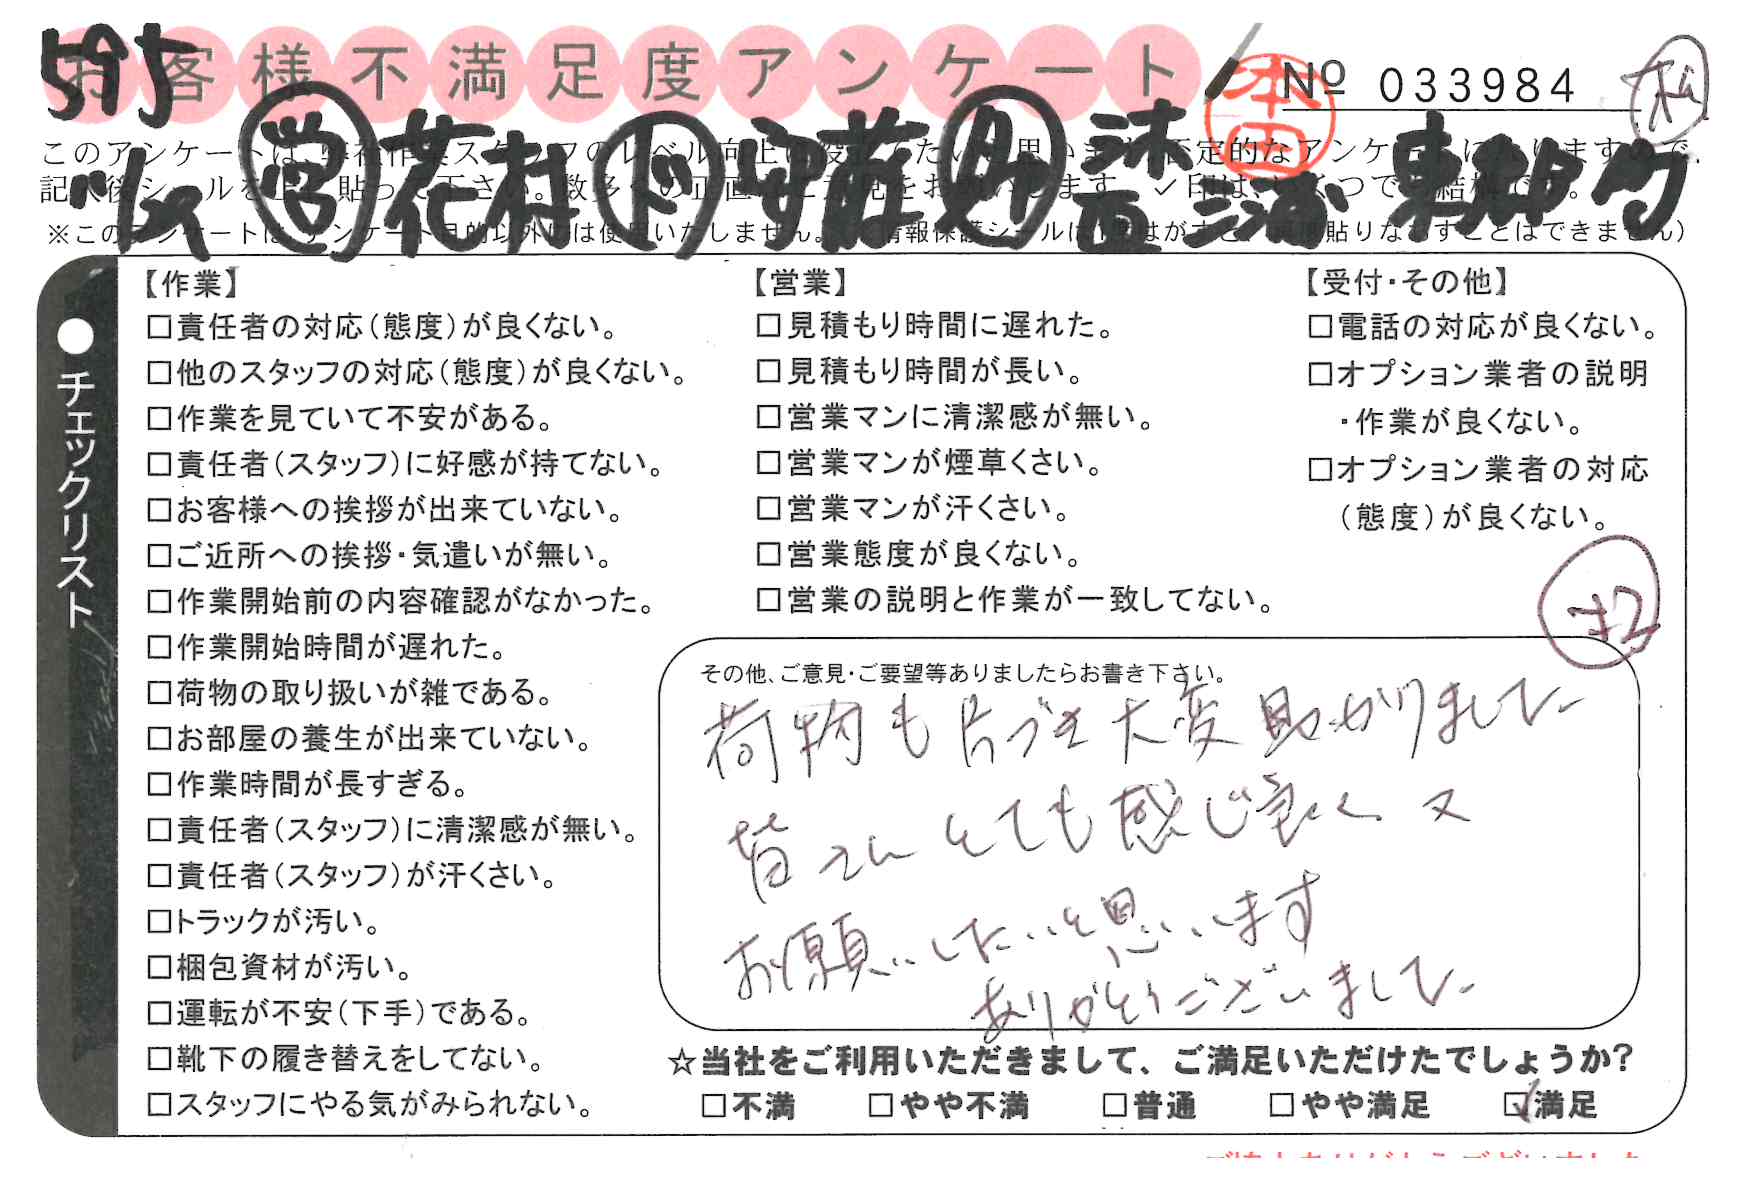 お客様不満足度アンケート
本田
No 033984
593
営 花村 ド 安藤 助
【作業】
□責任者の対応(態度)が良くない。
□他のスタッフの対応(態度)が良くない。
□作業を見ていて不安がある。
□責任者(スタッフ)に好感が持てない。
□お客様への挨拶が出来ていない。
□ご近所への挨拶・気遣いが無い。
□作業開始前の内容確認がなかった。
□作業開始時間が遅れた。
□荷物の取り扱いが雑である。
□お部屋の養生が出来ていない。
□作業時間が長すぎる。
□責任者(スタッフ)に清潔感が無い。
□責任者(スタッフ)が汗くさい。
□トラックが汚い。
□梱包資材が汚い。
□運転が不安(下手)である。
□靴下の履き替えをしてない。
□スタッフにやる気がみられない。
●チェックリスト
【営業】
□見積もり時間に遅れた。
□見積もり時間が長い。
□営業マンに清潔感が無い。
□営業マンが煙草くさい。
□営業マンが汗くさい。
□営業態度が良くない。
□営業の説明と作業が一致してない。
【受付・その他】
□電話の対応が良くない。
□オプション業者の説明
・作業が良くない。
□オプション業者の対応
(態度)が良くない。
その他、ご意見・ご要望等ありましたらお書き下さい。
荷物も片づき大変助かりました
皆さんとても感じ良く 又
お願いしたいと思います
ありがとうございました
☆当社をご利用いただきまして、ご満足いただけたでしょうか?
□不満 □やや不満 □普通 □やや満足 ☑満足